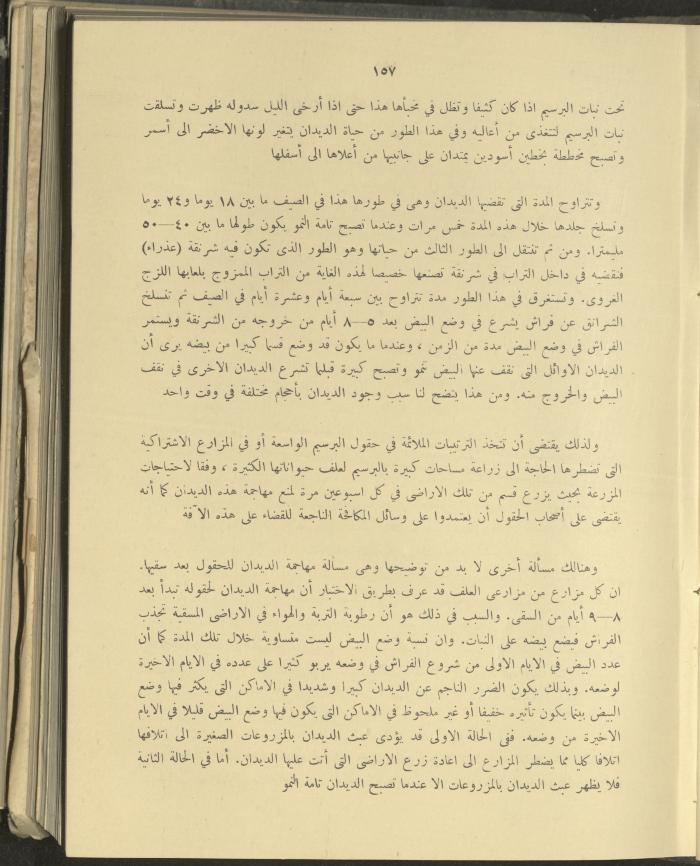 ١٥٧
تحت نبات البرسيم اذا كان كثيفا وتظل في مخبأها هذا حتى اذا أرخى الليل سدوله ظهرت وتسلقت
نبات البرسيم لتتغذى من أعاليه وفي هذا الطور من حياة الديدان يتغير لونها الاخضر الى أسمر
وتصبح مخططة بخطين أسودين يمتدان على جانبيها من أعلاها الى أسفلها
وتتراوح المدة التى تقضيها الديدان وهى في طورها هذا في الصيف ما بين ١٨ يوما و٢٤ يوما
وتسلخ جلدها خلال هذه المدة خمس مرات وعندما تصبح تامة النمو يكون طولها ما بين ٤٠—٥٠
مليمترا. ومن ثم تنتقل الى الطور الثالث من حياتها وهو الطور الذى تكون فيه شرنقة (عذراء)
فتقضيه في داخل التراب في شرنقة تصنعها خصيصا لهذه الغاية من التراب الممزوج بلعابها اللزج
الغروى. وتستغرق في هذا الطور مدة تتراوح بين سبعة أيام وعشرة أيام في الصيف ثم تنسلخ
الشرانق عن فراش يشرع في وضع البيض بعد ٥—٨ أيام من خروجه من الشرنقة ويستمر
الفراش في وضع البيض مدة من الزمن ، وعندما ما يكون قد وضع قسما كبيرا من بيضه يرى أن
الديدان الاوائل التى نقف عنها البيض تنمو وتصبح كبيرة قبلما تشرع الديدان الاخرى في نقف
البيض والخروج منه. ومن هذا يتضح لنا سبب وجود الديدان بأحجام مختلفة في وقت واحد
ولذلك يقتضى أن تتخذ الترتيبات الملائمة في حقول البرسيم الواسعة أو في المزارع الاشتراكية
التى تضطرها الحاجة الى زراعة مساحات كبيرة بالبرسيم لعلف حيواناتها الكثيرة ، وفقا لاحتياجات
المزرعة بحيث يزرع قسم من تلك الاراضى في كل اسبوعين مرة لمنع مهاجمة هذه الديدان كما أنه
يقتضى على أصحاب الحقول أن يعتمدوا على وسائل المكافحة الناجعة للقضاء على هذه الآفة
وهنالك مسألة أخرى لا بد من توضيحها وهى مسألة مهاجمة الديدان للحقول بعد سقيها.
ان كل مزارع من مزارعى العلف قد عرف بطريق الاختبار أن مهاجمة الديدان لحقوله تبدأ بعد
٨—٩ أيام من السقى. والسبب في ذلك هو أن رطوبة التربة والهواء في الاراضى المسقية تجذب
الفراش فيضع بيضه على النبات. وان نسبة وضع البيض ليست متساوية خلال تلك المدة كما أن
عدد البيض في الايام الاولى من شروع الفراش في وضعه يربو كثيرا على عدده في الايام الاخيرة
لوضعه. وبذلك يكون الضرر الناجم عن الديدان كبيرا وشديدا في الاماكن التى يكثر فيها وضع
البيض بينما يكون تأثيره خفيفا أو غير ملحوظ في الاماكن التى يكون فيها وضع البيض قليلا في الايام
الاخيرة من وضعه. ففى الحالة الاولى قد يؤدى عبث الديدان بالمزروعات الصغيرة الى اتلافها
اتلافا كليا مما يضطر المزارع الى اعادة زرع الاراضى التى أتت عليها الديدان. أما في الحالة الثانية
فلا يظهر عبث الديدان بالمزروعات الا عندما تصبح الديدان تامة النمو